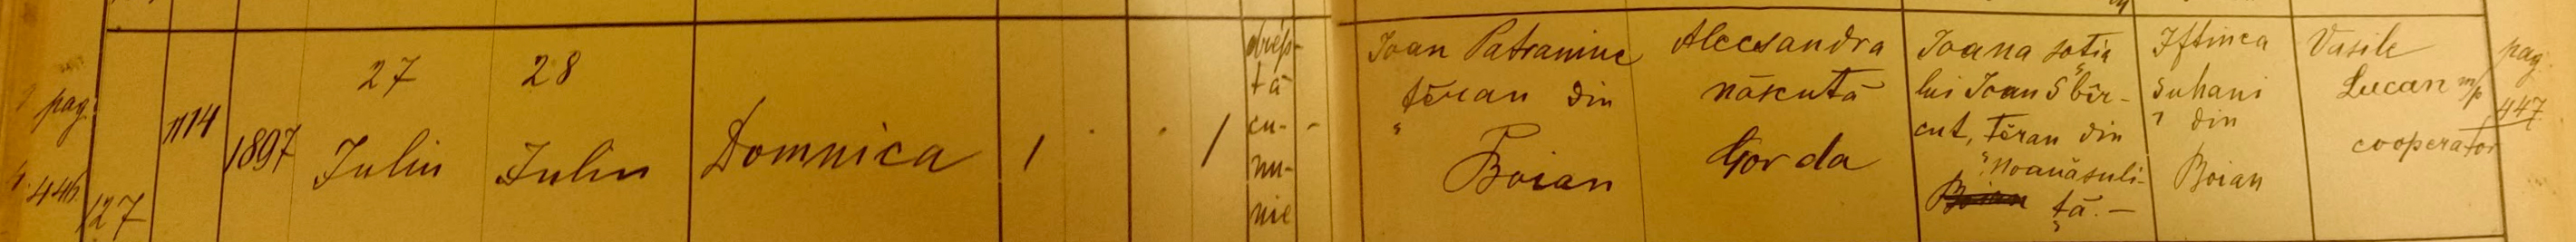 pag.
446.
127
1114
1897
27
Iuliu
28
Iuliu
Domnica
1
1
drép-
tă
cu-
nu-
nie
Ioan Patraniuc
țĕran din
Boian
Alecsandra
născută
Gorda
Ioana soția
lui Ioan Sbĕr-
cut, țĕran din
Noauăsuli-
Boian ță.-
Iftinca
Suhani
din
Boian
Vasile
Lucan m/p
cooperator
pag.
447